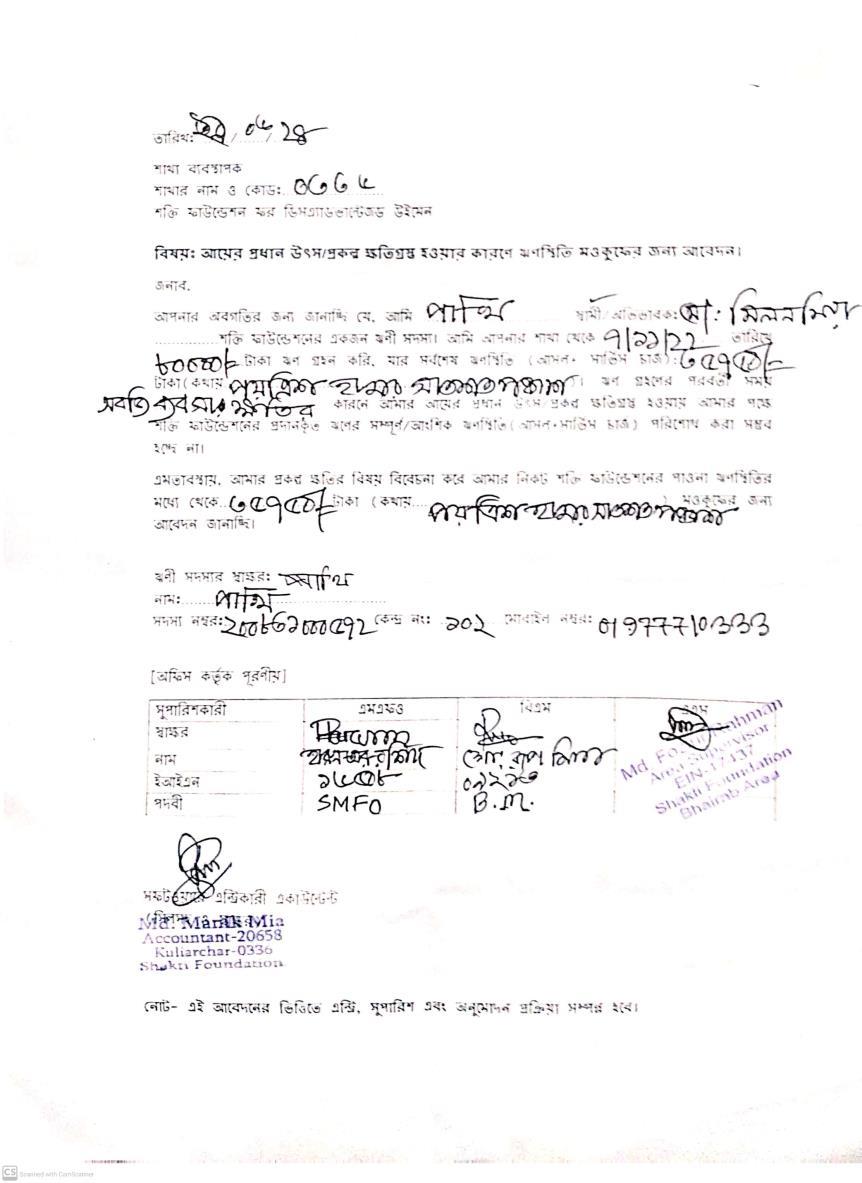 তারিখ: /০৫/২৪
শাখা ব্যবস্থাপক
শাখার নাম ও কোড: ০৩৩৬
শক্তি ফাউন্ডেশন ফর ডিসএ্যাডভান্টেজড উইমেন
বিষয়: আয়ের প্রধান উৎস/প্রকল্প ক্ষতিগ্রস্ত হওয়ার কারণে ঋণস্থিতি মওকুফের জন্য আবেদন।
জনাব,
আপনার অবগতির জন্য জানাচ্ছি যে, আমি পাখি স্বামী/অভিভাবক: মো: মিলন মিয়া
শক্তি ফাউন্ডেশনের একজন ঋণী সদস্য। আমি আপনার শাখা থেকে ৭/১১/২২ তারিখে
৮০০০০/- টাকা ঋণ গ্রহন করি, যার সর্বশেষ ঋণস্থিতি (আসল+ সার্ভিস চার্জ): ৩৫৭৫০/-
টাকা (কথায় পয়ত্রিশ হাজার সাতশত পঞ্চাশ)। ঋণ গ্রহণের পরবর্তী সময়
ব্যবসায় ক্ষতির কারনে আমার আয়ের প্রধান উৎস/প্রকল্প ক্ষতিগ্রস্ত হওয়ায় আমার পক্ষে
শক্তি ফাউন্ডেশনের প্রদানকৃত ঋনের সম্পূর্ণ/আংশিক ঋণস্থিতি (আসল+সার্ভিস চার্জ) পরিশোধ করা সম্ভব
হচ্ছে না।
এমতাবস্থায়, আমার প্রকল্প ক্ষতির বিষয় বিবেচনা করে আমার নিকট শক্তি ফাউন্ডেশনের পাওনা ঋণস্থিতির
মধ্যে থেকে ৩৫৭৫০/- টাকা (কথায় পয়ত্রিশ হাজার সাতশত পঞ্চাশ) মওকুফের জন্য
আবেদন জানাচ্ছি।
ঋণী সদস্যর স্বাক্ষর: পাখি
নাম: পাখি
সদস্য নম্বর: ২০০৮৬১০০০৫৭২ কেন্দ্র নং: ১০২ মোবাইল নম্বর: 01977710333
[অফিস কর্তৃক পূরণীয়]
সুপারিশকারী এমএফও বিএম এএস
স্বাক্ষর
নাম মো: মিলন
ইআইএন
পদবী SMFO B.M.
Md. Fozlur Rahman
Area Supervisor
EIN-17137
Shakti Foundation
Bhairab Area
সফটওয়্যারে এন্ট্রিকারী একাউন্টেন্ট
Md. Manik Mia
Accountant-20658
Kuliarchar-0336
Shakti Foundation
নোট- এই আবেদনের ভিত্তিতে এন্ট্রি, সুপারিশ এবং অনুমোদন প্রক্রিয়া সম্পন্ন হবে।
CS Scanned with CamScanner